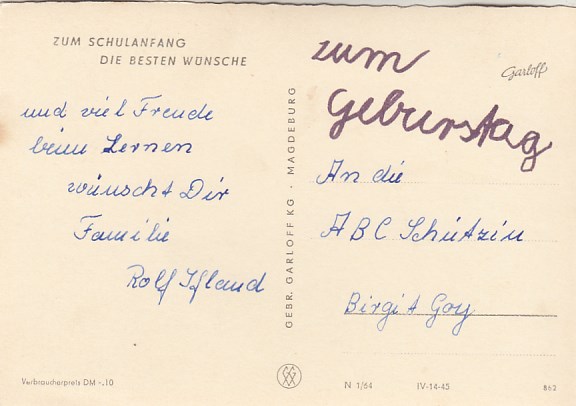 ZUM SCHULANFANG
DIE BESTEN WÜNSCHE
und viel Freude
beim Lernen
wünscht Dir
Familie
Rolf Ifland
Verbraucherpreis DM -.10
GEBR. GARLOFF KG · MAGDEBURG
zum
Geburstag
Garloff
An die
ABC Schützin
Birgit Goy
N 1/64 IV-14-45 862